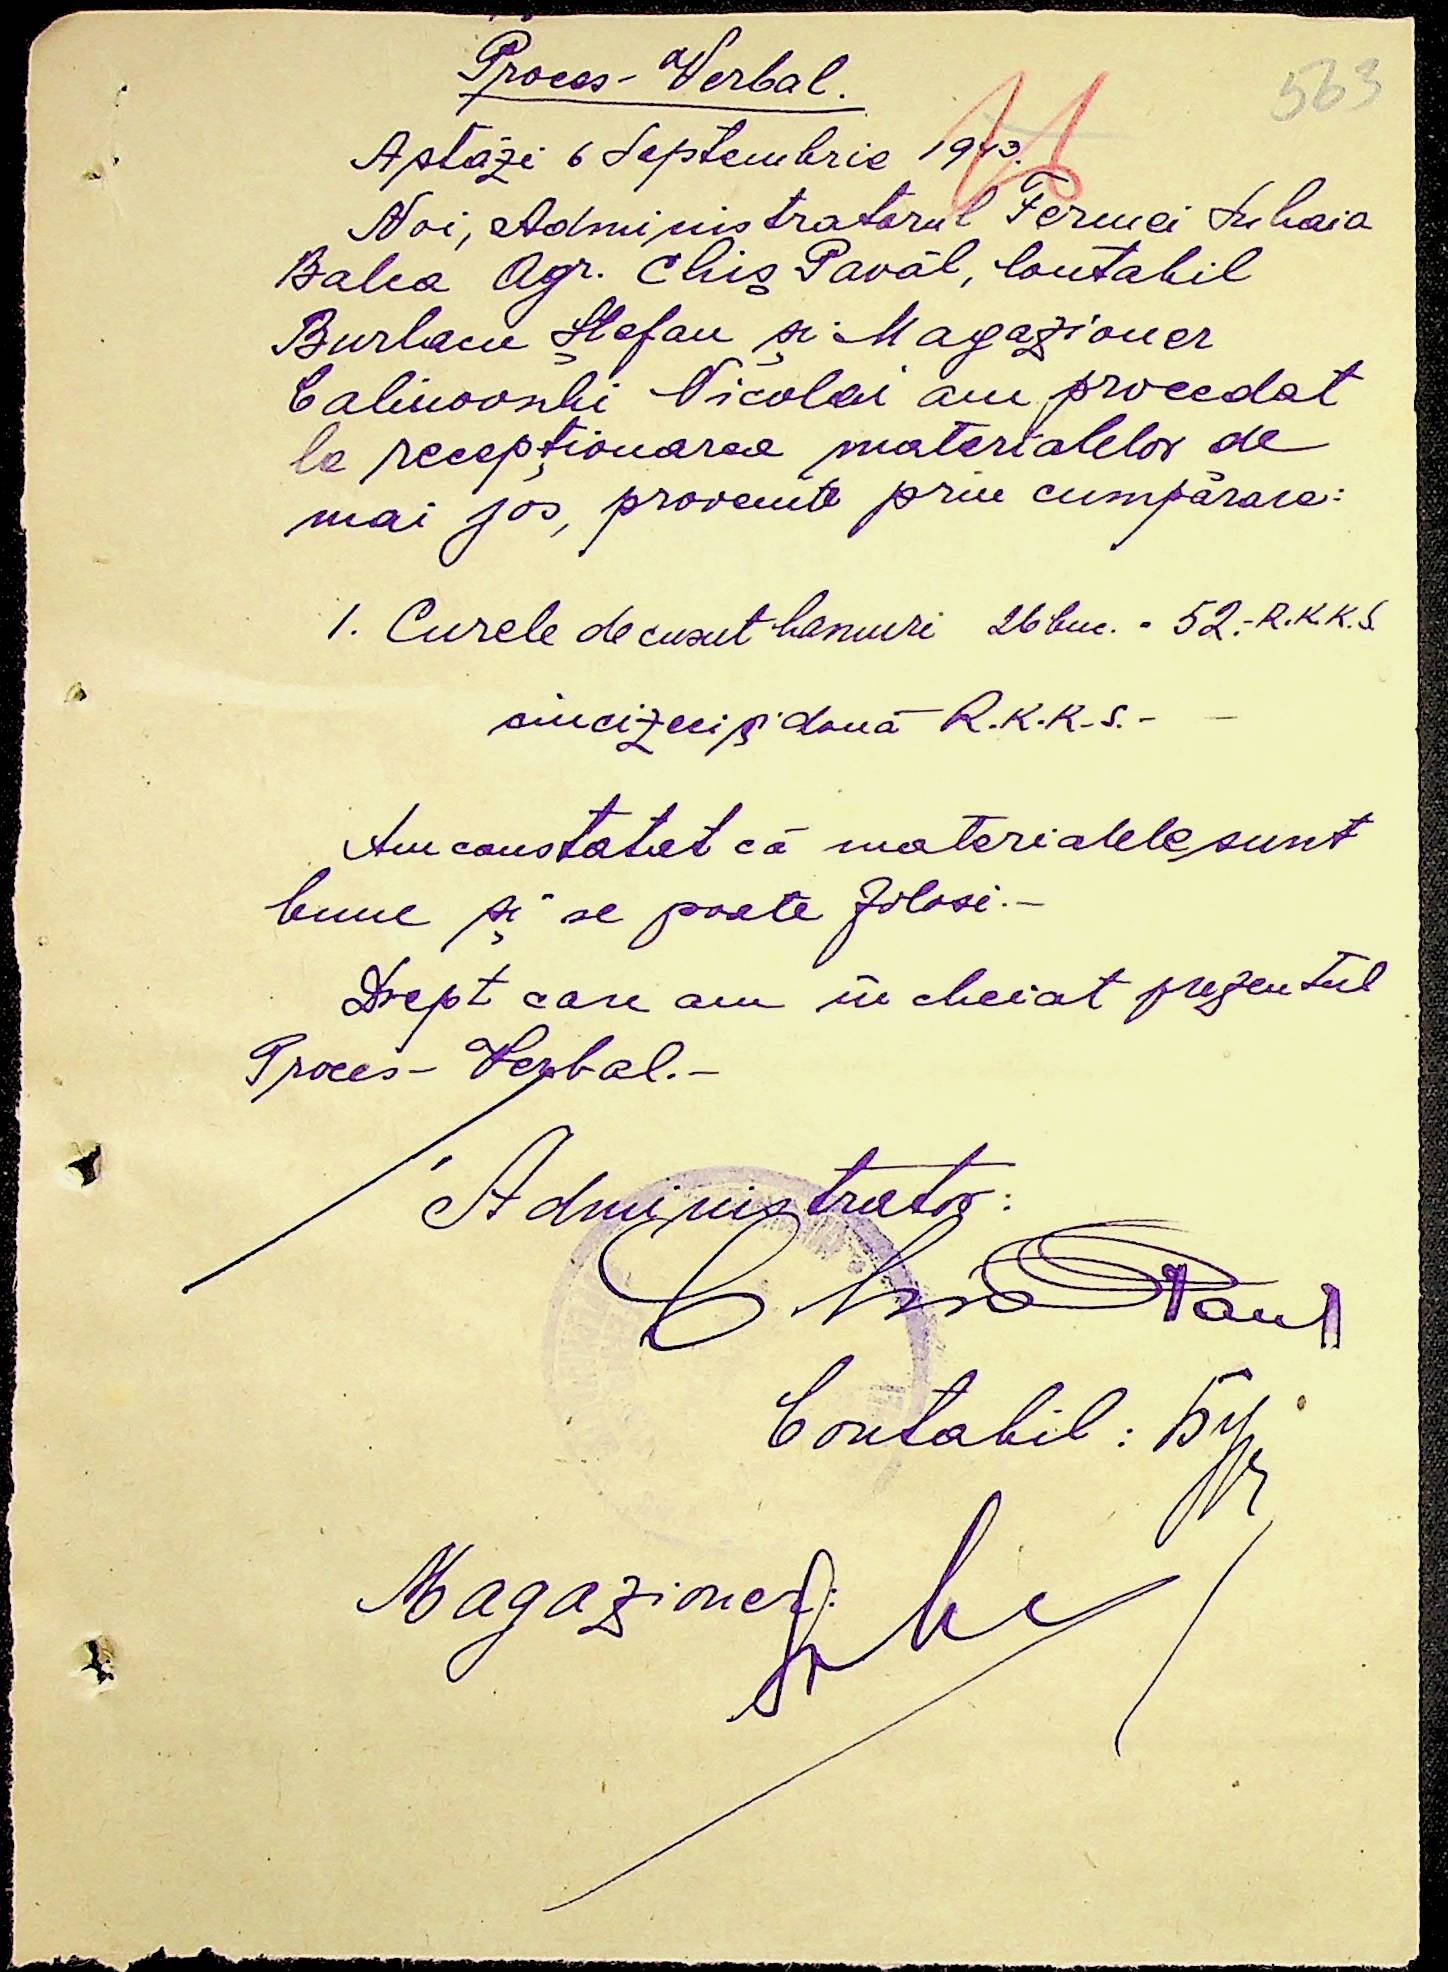 563
Proces-Verbal.
Astăzi 6 Septembrie 1943.
Noi, Administratorul Fermei Suhaia
Balca Agr. Chiș Pavăl, Contabil
Burlacu Ștefan și Magazioner
Calinovschi Nicolai am procedat
la recepționarea materialelor de
mai jos, provenite prin cumpărare:
1. Curele de cusut hamuri 26 buc. = 52.- R.K.K.S.
cincizeci și două R.K.K.S.-
Am constatat că materialele sunt
bune și se poate folosi.-
Drept care am încheiat prezentul
Proces-Verbal.-
Administrator:
Chiș Paul
Contabil:
Magazioner: